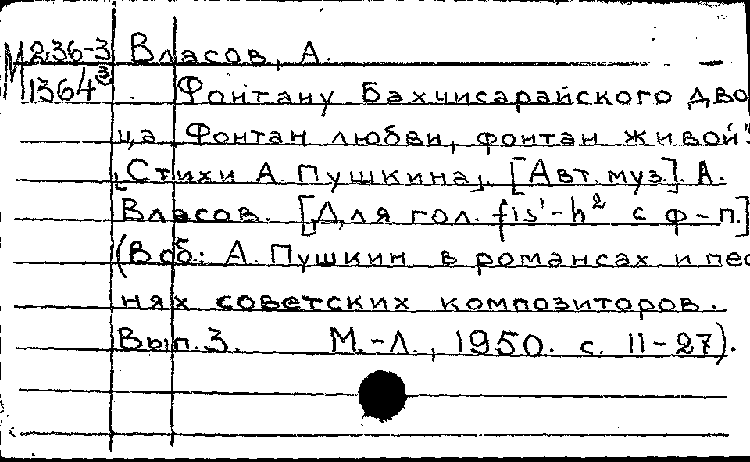 М 236-3 Власов, А.
1364 ③ Фонтану Бахчисарайского дво
ца. Фонтан любви, фонтан живой!
[Стихи А. Пушкина]. [Авт. муз.]. А.
Власов. [Для гол. fis'-h² с ф-п.]
(В сб: А. Пушкин в романсах и пес
нях советских композиторов.
Вып. 3. М.-Л., 1950. с. 11-27).